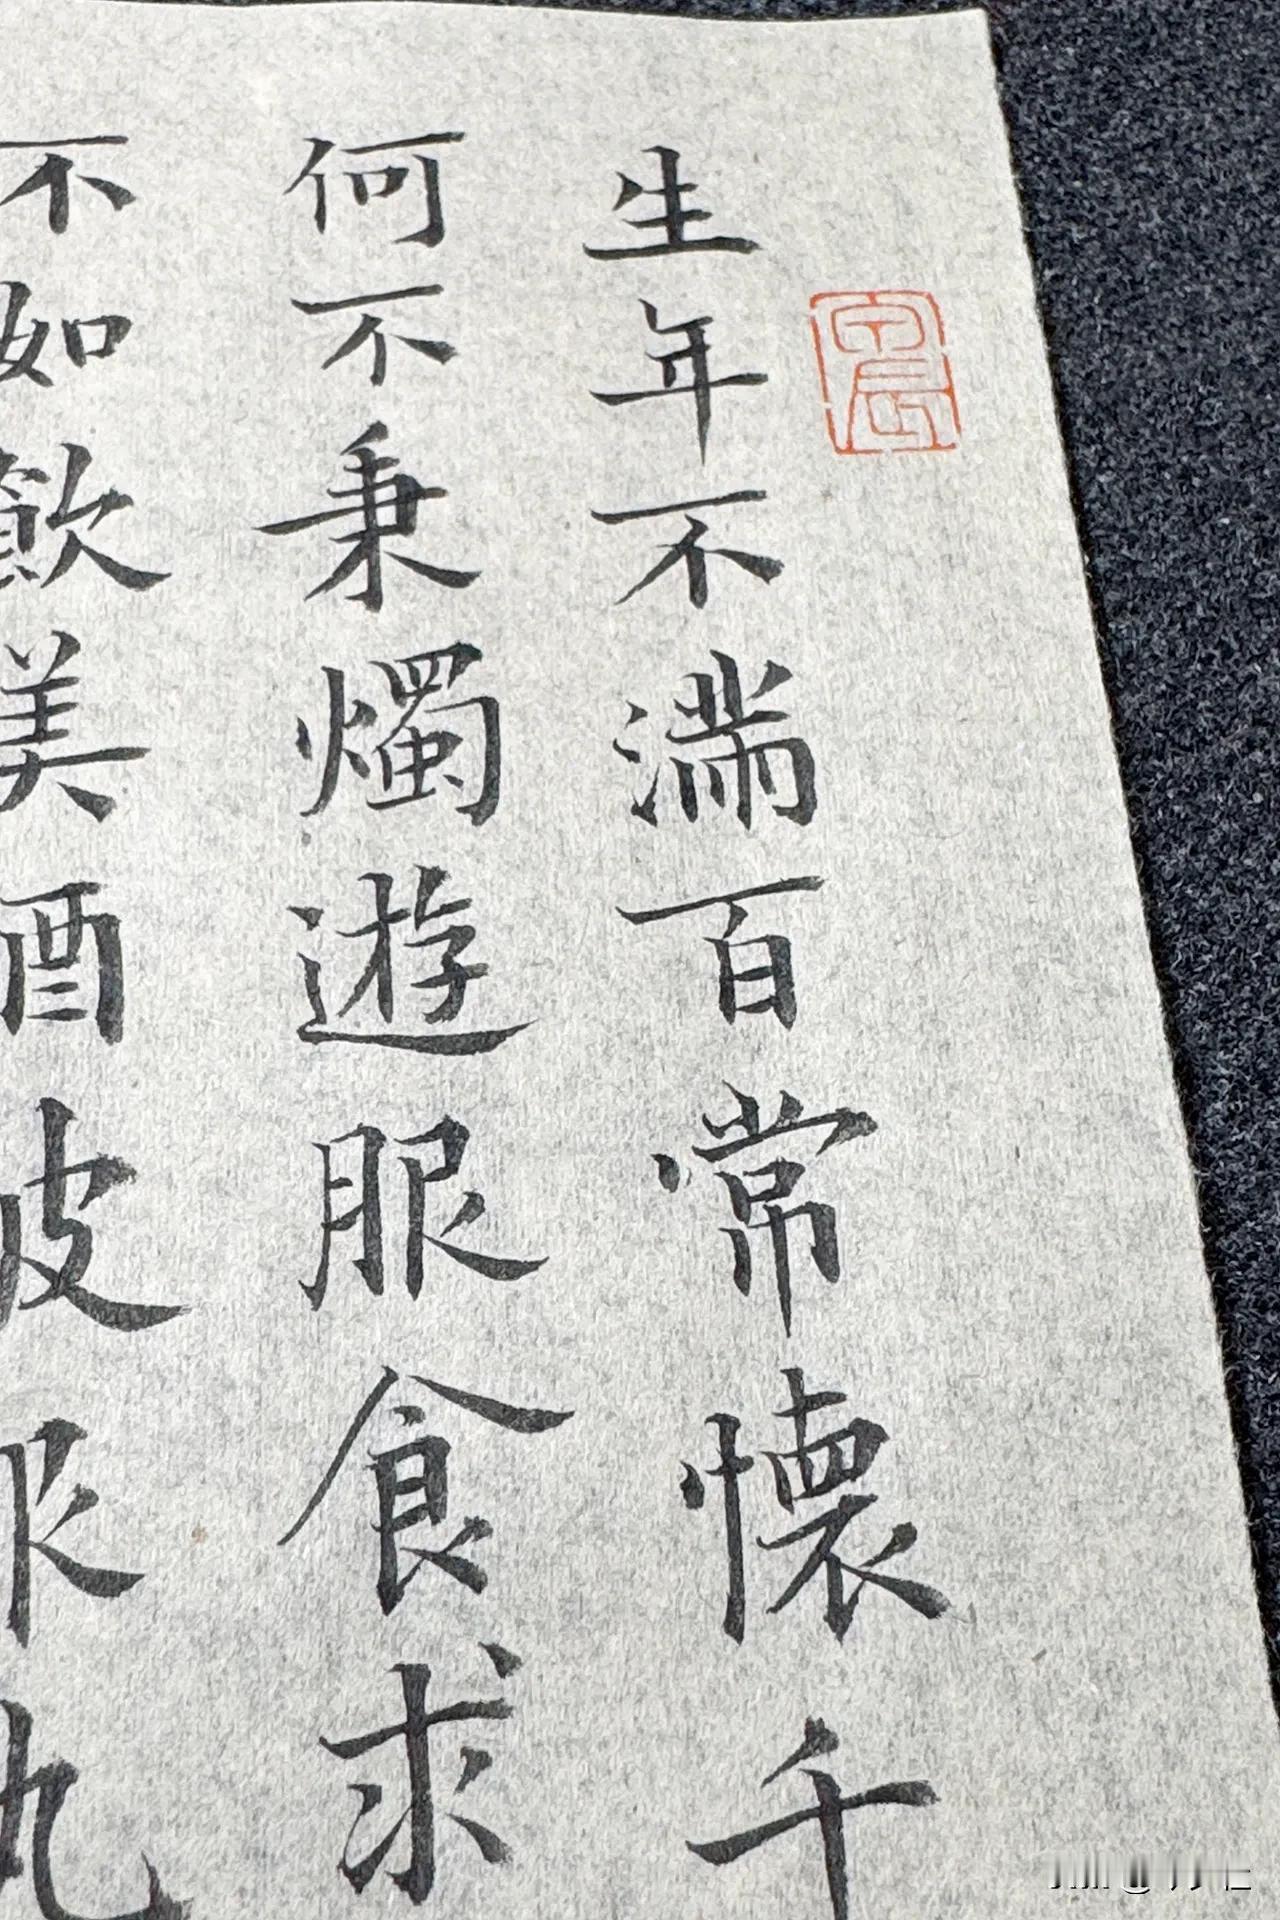 生年不滿百常懷千
何不秉燭遊服食求
不如飲美酒被服紈